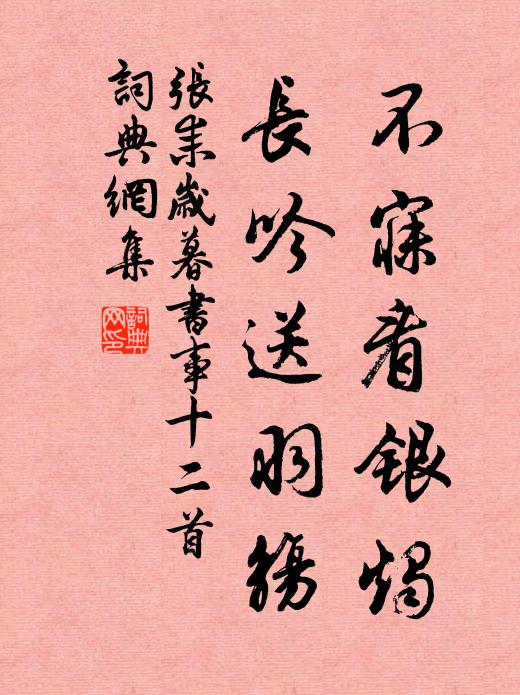 不寐看銀燭
長吟送羽觴
張耒歲暮書事十二首
詞典網集
詞典
网印